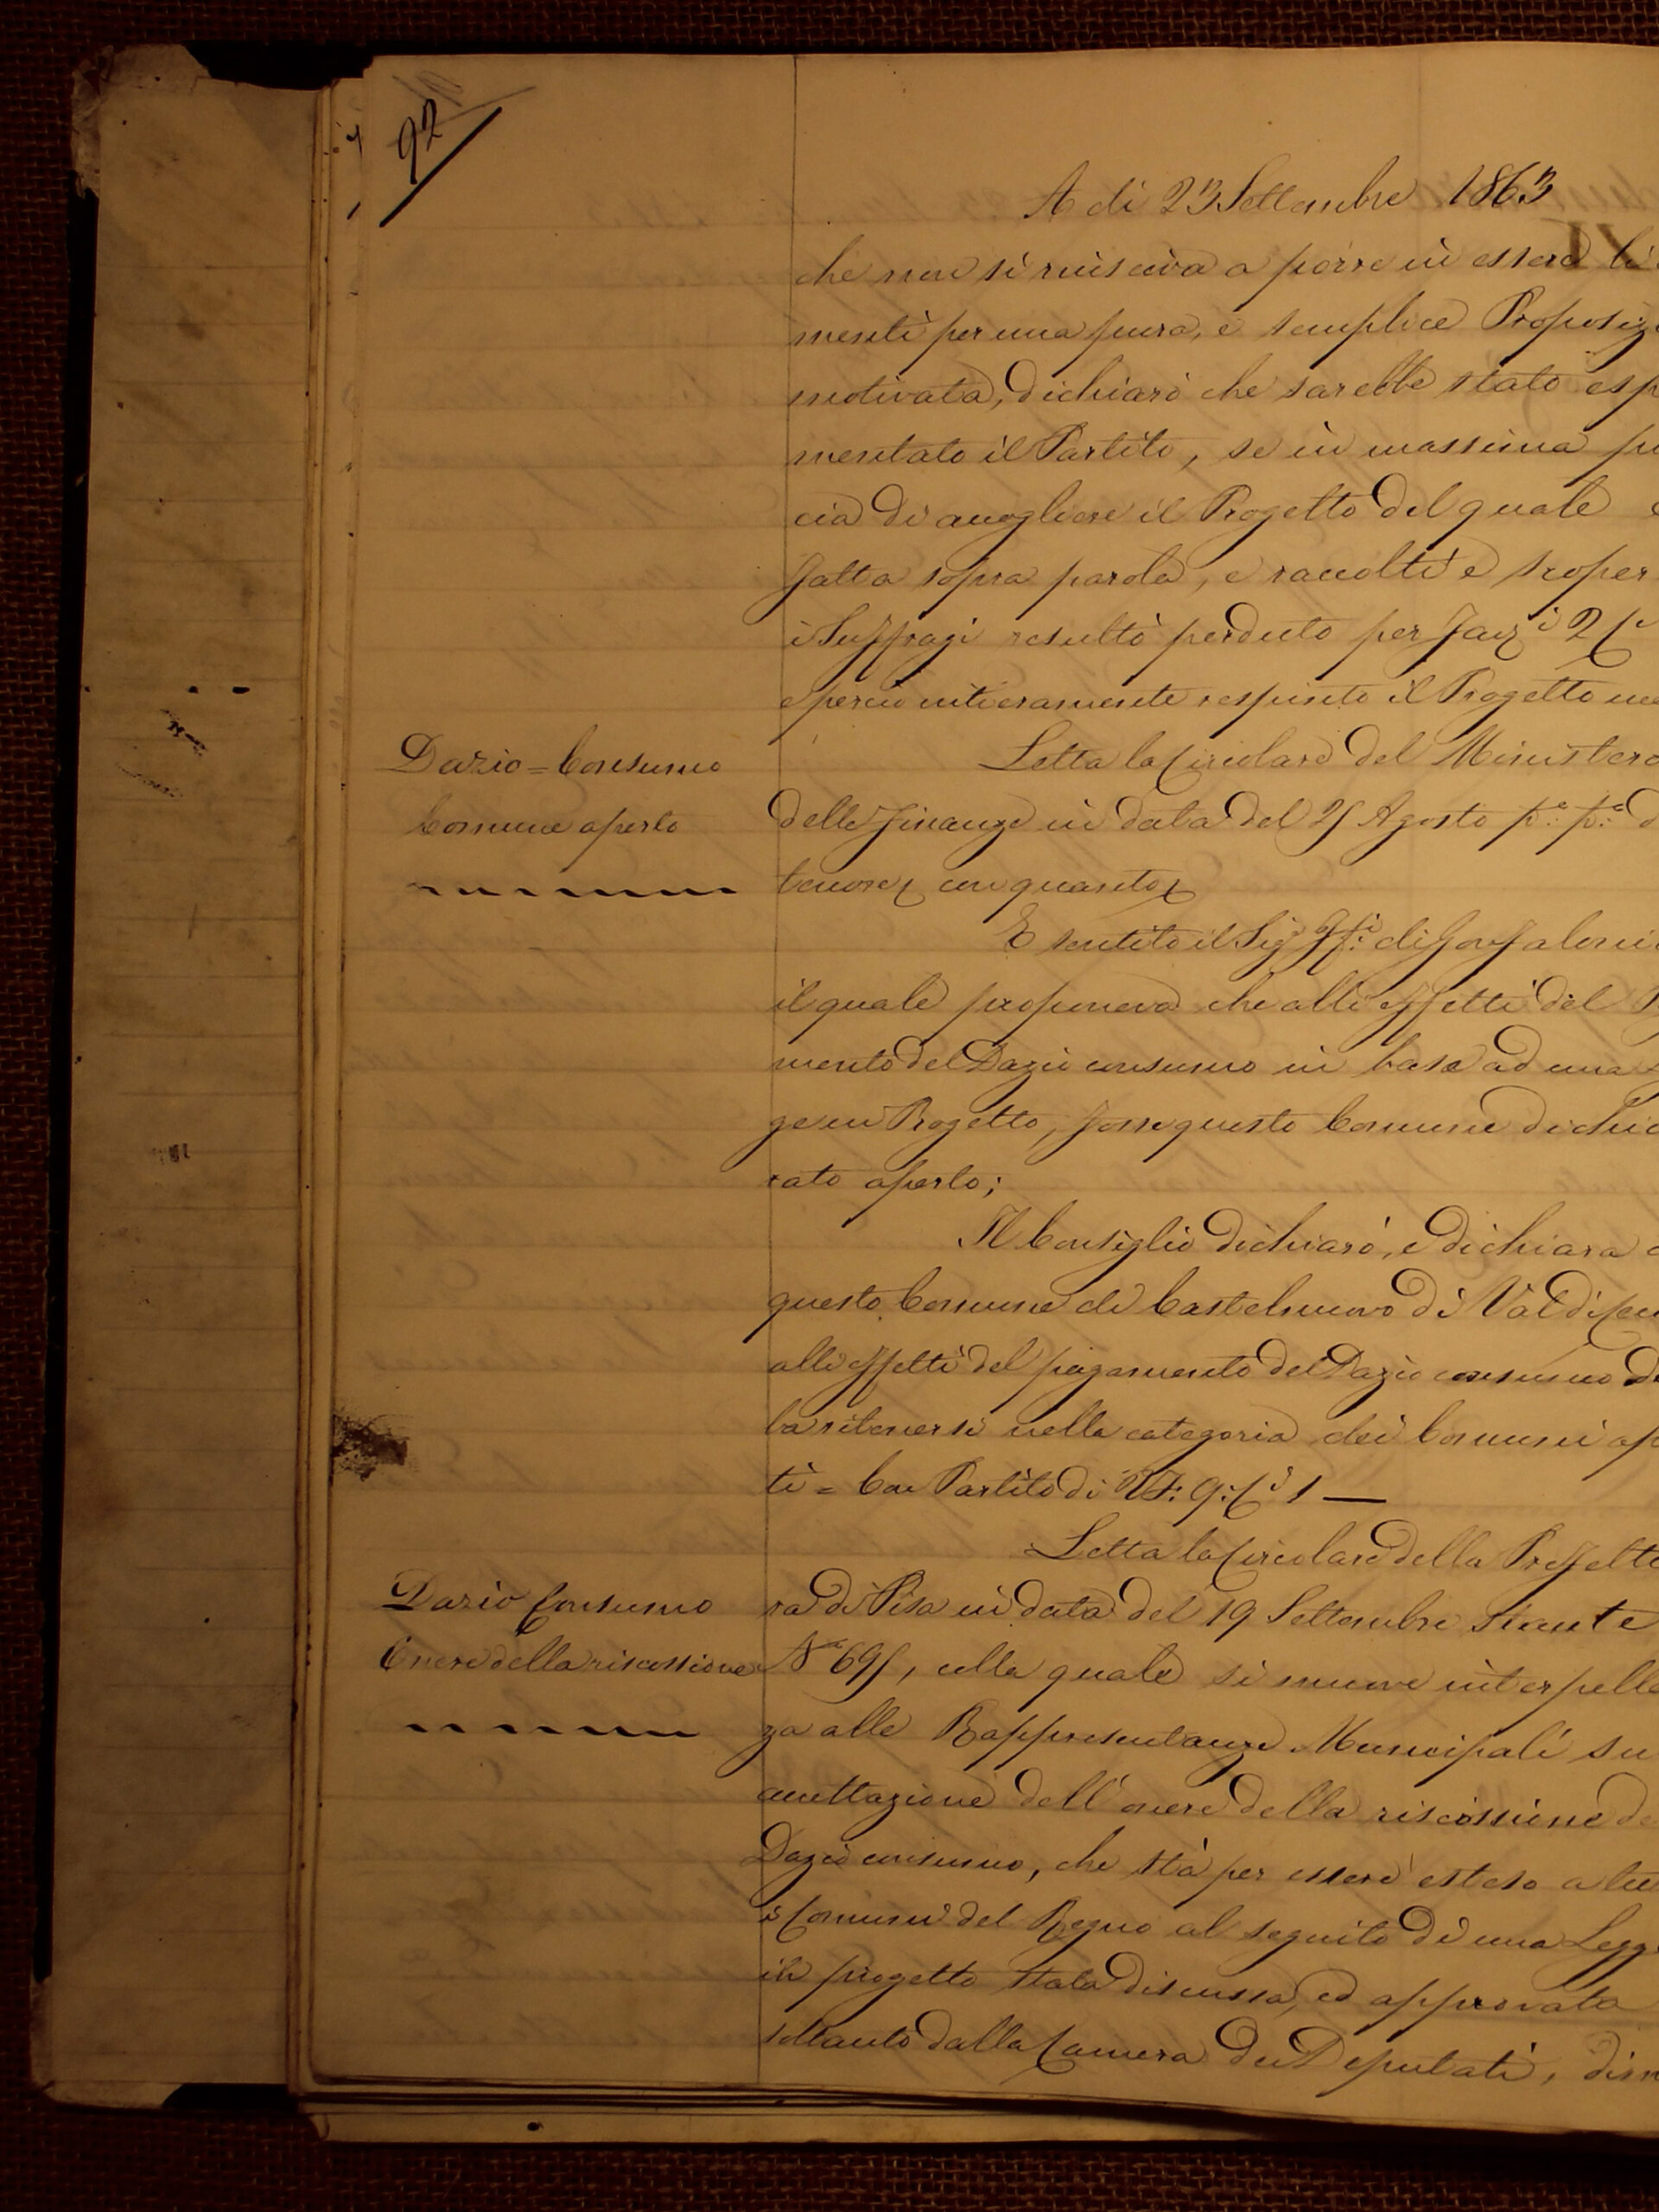 92
A dì 23 Settembre 1863
che non si riusciva a porre in essere
menti per una pura, e semplice Proposiz
motivata, dichiarò che sarebbe stato esp
mentato il Partito, se in massima
cia di accogliere il Progetto del quale
fatta sopra parola, e raccolti e scoper
i Suffragi resultò perduto per
e perciò intieramente respinto il Progetto
Dazio = Consumo
Comune aperto
Letta la Circolare del Ministero
delle Finanze in data del Agosto p.o p.o d
tenore, con quanto
E sentito il Sig.r di Gonfalonie
il quale proponeva che alli effetti del
mento del Dazio consumo in base ad una
ge in Progetto, fosse questo Comune dichia
rato aperto;
Il Consiglio dichiarò, e dichiara
questo Comune di Castelnuovo di Val di Cec
alli effetti del pagamento del Dazio consumo de
ba ritenersi nella categoria dei Comuni ap
ti = Con Partito di V.F: 9: C.i 1 —
Dazio Consumo
Onere della riscossione
Letta la Circolare della Prefettu
ra di Pisa in data del 19 Settembre stante
N° colla quale si muove interpella
za alle Rappresentanze Municipali su
accettazione dell'onere della riscossione de
Dazio consumo, che stà per essere esteso a tu
i Comuni del Regno al seguito di una Legg
in progetto stata discussa, ed approvata
soltanto dalla Camera dei Deputati,